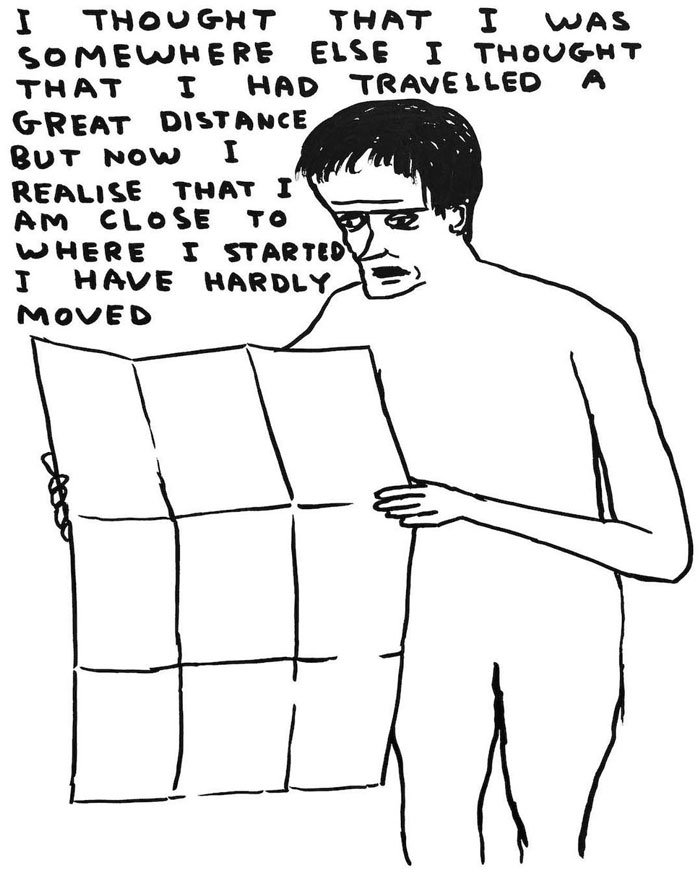 I THOUGHT THAT I WAS
SOMEWHERE ELSE I THOUGHT
THAT I HAD TRAVELLED A
GREAT DISTANCE
BUT NOW I
REALISE THAT I
AM CLOSE TO
WHERE I STARTED
I HAVE HARDLY
MOVED